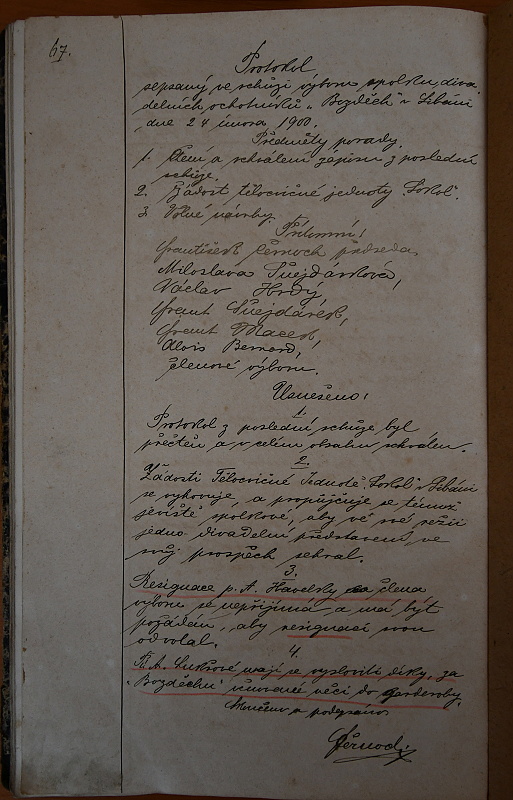 67.
Protokol
sepsaný ve schůzi výboru spolku diva-
delních ochotníků "Bozděch" v Libáni
dne 24 února 1900.
Předměty porady.
1. Čtení a schválení zápisu z poslední
schůze.
2. Žádost tělocvičné jednoty "Sokol".
3. Volné návrhy.
Přítomni:
František Černoch předseda,
Miloslava Šnejdárková,
Václav Hrdý,
Frant Šnejdárek,
Frant Macek,
Alois Bernard,
členové výboru.
Usnešeno:
1.
Protokol z poslední schůze byl
přečten a v celém obsahu schválen.
2.
Žádosti Tělocvičné Jednotě "Sokol" v Libáni
se vyhovuje, a propůjčuje se témuž
jeviště spolkové, aby ve své režii
jedno divadelní představení, ve
svůj prospěch sehrál.
3.
Resignace p. A. Havelky za člena
výboru se nepřijímá, a má být
požádán, aby resignaci svou
odvolal.
4.
A. mají se vysloviti díky, za
"Bozděchu" věnované věci do garderoby.
Skončeno a podepsáno
Černoch.